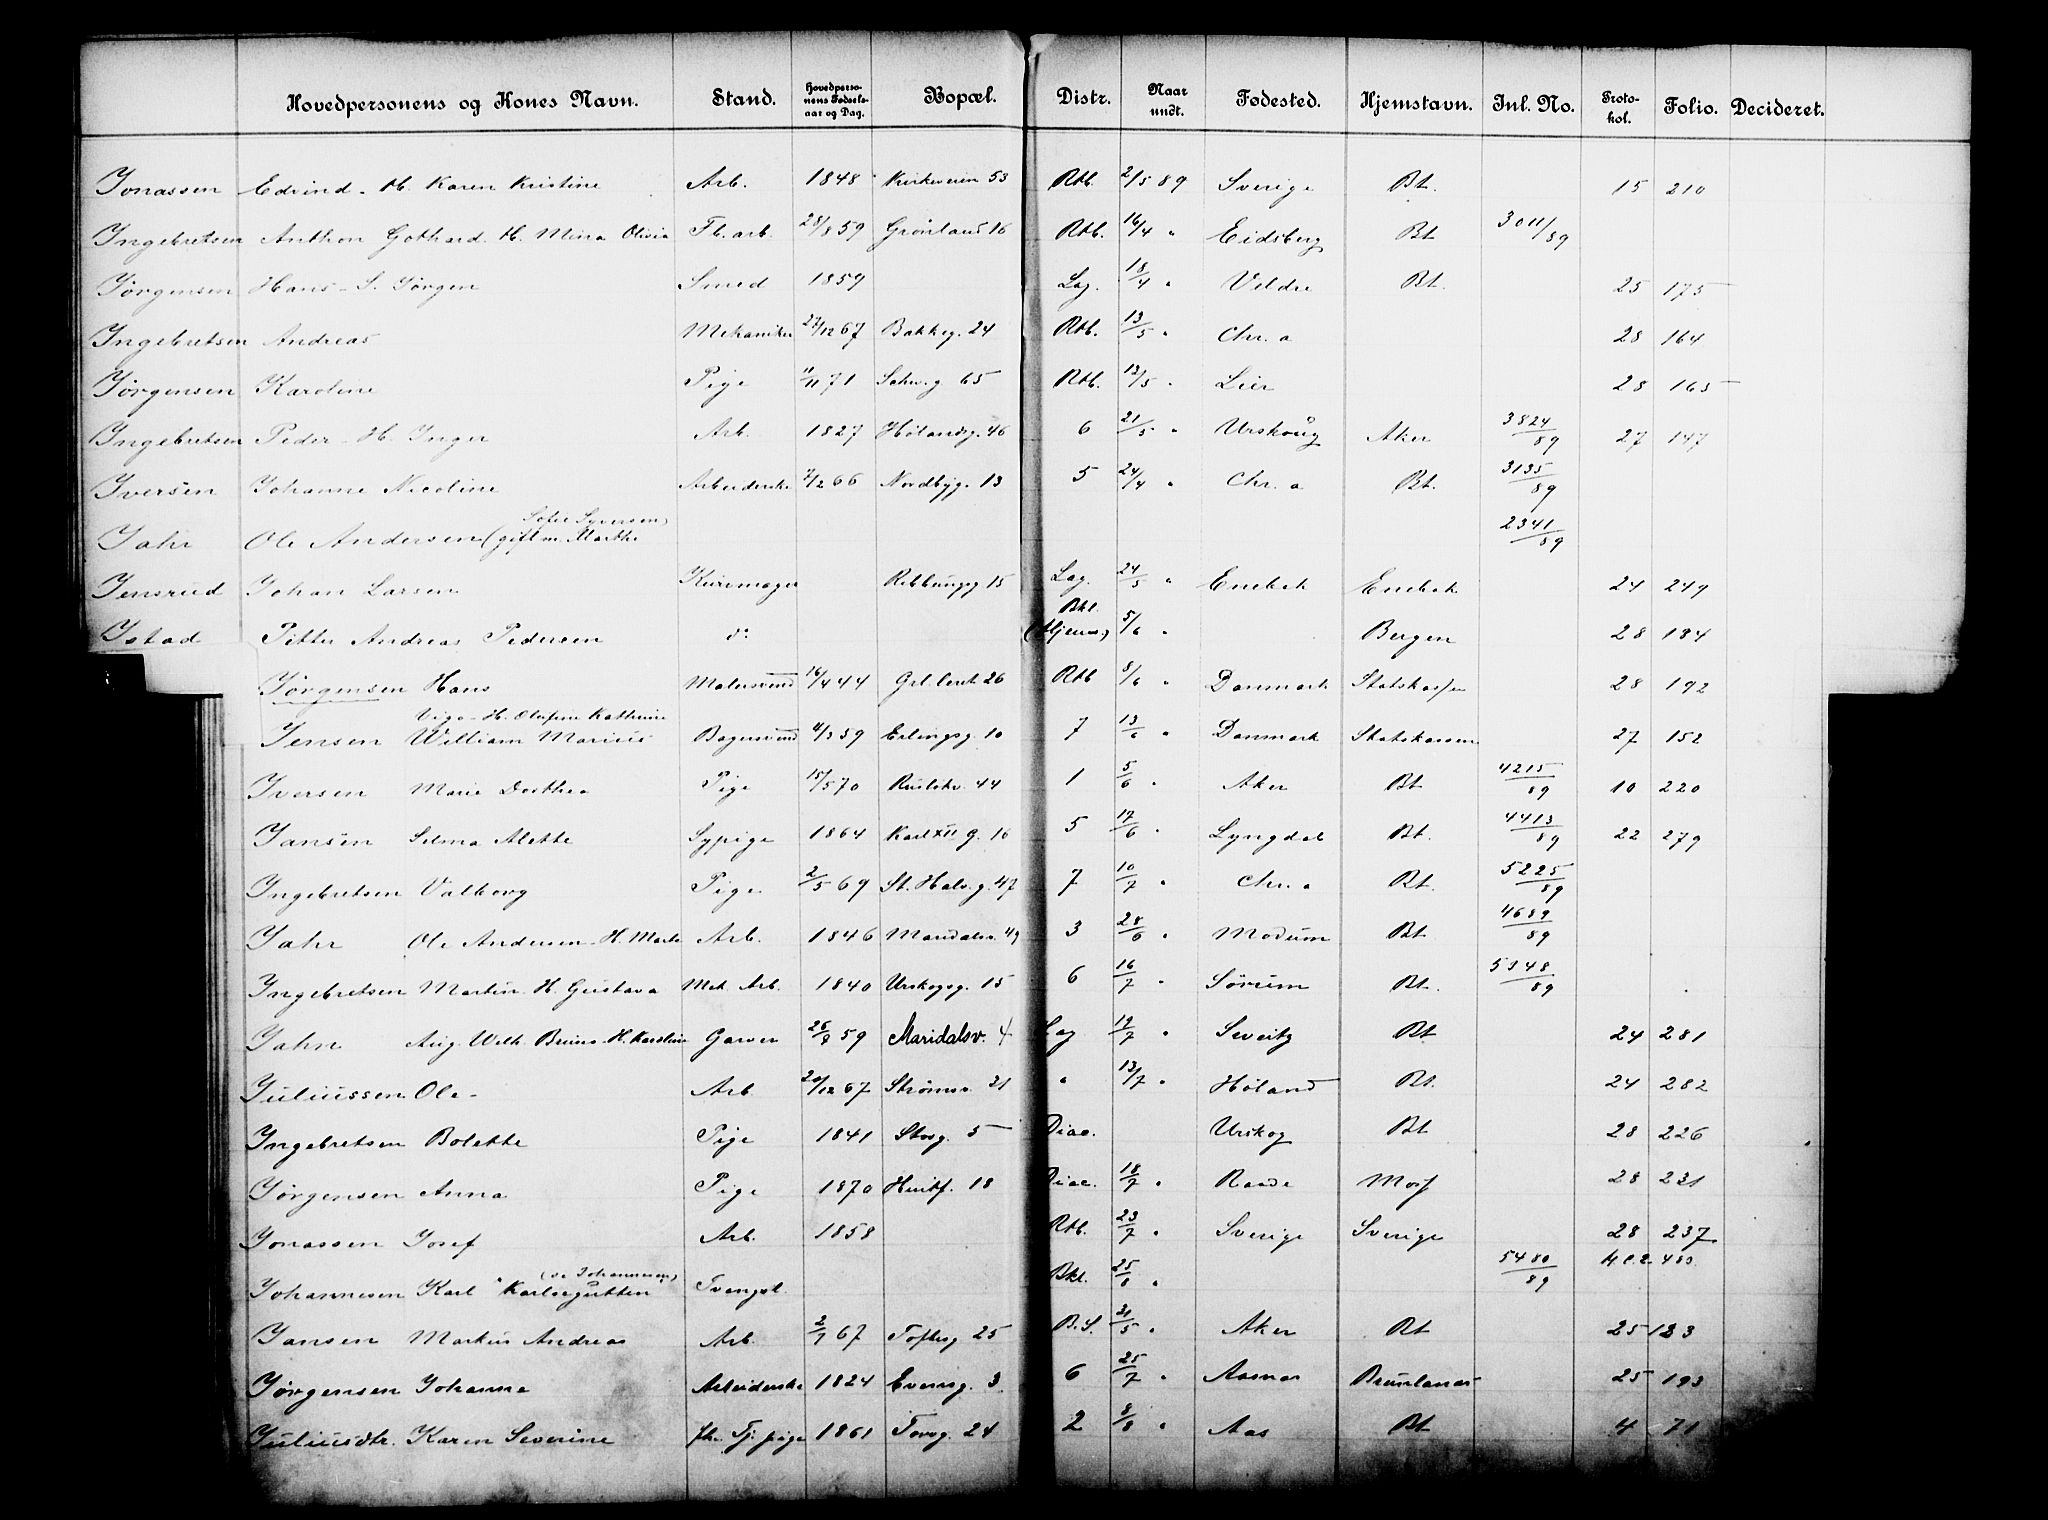 Hovedpersonens og Kones Navn. Stand. Hovedpersonens Fødselsaar og Dag. Bopæl. Distr. Naar undt. Fødested. Hjemstavn. Inl. No. Protokol. Folio. Decideret.
Jonassen Edvind - H. Karen Kristine Arb. 1848 Kirkeveien 53 Rtb. 2/5 89 Sverige Bt. 15 210
Ingebretsen Anthon Gothard. H. Mina Olivia Fb. arb. 28/8 59 Grønland 16 Rtb. 16/4 " Eidsberg Bt 3011/89
Jørgensen Hans - S. Jørgen Smed 1859 Lag. 18/4 " Veldre Bt. 25 175
Ingebretsen Andreas Mekaniker 27/12 67 Bakkeg. 24 Rtb. 13/5 " Chr. a 28 164
Jørgensen Karoline Pige 11/11 71 Schw. g. 65 Rtb. 13/5 " Lier 28 165
Ingebretsen Peder - H. Inger Arb. 1827 Hølandsg. 46 6 21/5 " Urskoug Aker 3824/89 27 147
Iversen Johanne Nicoline Arbeiderske 7/2 66 Nordbyg. 13 5 24/4 " Chr. a Bt. 3135/89
Sofie Syversen)
Jahr Ole Andersen (gift m. Marthe 2341/89
Jensrud Johan Larsen Kurvmager Rebbungg 15 Lag. 24/5 " Enebak Enebak 24 249
Istad Pitter Andreas Pedersen do Bkl. (Hjems.) 5/6 " Bergen 28 184
Jørgensen Hans Malersvend 16/4 44 Grl. leret 26 Rtb 8/6 " Danmark Statskassen 28 192
Vigo - H. Olufine Kathrine
Jensen William Marius Bagersvend 11/3 39 Erlingsg. 10 7 13/6 " Danmark Statskassen 27 152
Iversen Marie Dorthea Pige 15/5 70 Rusløkv. 44 1 5/6 " Aker Bt 4215/89 10 220
Jansen Selma Alette Sypige 1864 Karl XII g. 16 5 17/6 " Lyngdal Bt. 4413/89 22 279
Ingebretsen Valborg Pige 2/5 69 St. Halv. g. 47 7 10/7 " Chr. a Bt. 5225/89
Jahr Ole Andersen - H. Marte Arb. 1846 Maridalsv. 49 3 28/6 " Modum Bt. 4689/89
Ingebretsen Martin. H. Gustava Mek Arb. 1840 Urskogsg. 15 6 16/7 " Sørum Bt. 5348/89
Jahn Aug. Wilh. Bruno - H. Karoline Garver 26/9 59 Maridalsv. 4 Lag 19/7 " Sveitz Bt 24 281
Juliussen Ole - Arb. 20/12 67 Strømsv. 21 " 13/7 " Høland Bt. 24 282
Ingebretsen Bolette Pige 1841 Storg. 5 Diac. Urskog Bt 28 226
Jørgensen Anna Pige 1870 Huitf. 18 Diac. 18/7 " Raade Moss 28 231
Jonassen Josef Arb. 1858 Rtb. 23/7 " Sverige Sverige 28 237
Johannesen Karl "Karlsegutten" Tvangst. Bkl. 25/8 " 5480/89
Jansen Markus Andreas Arb. 2/7 67 Toftesg 25 B.S. 31/5 " Aker Bt 25 123
Jørgensen Johanna Arbeiderske 1824 Evensg. 3. 6 25/7 " Aasnes Brunlanes 25 193
Juliusdtr. Karen Severine fhv. Tj. pige 1861 Torvg. 24 2 8/8 " Aas Bt 4 71